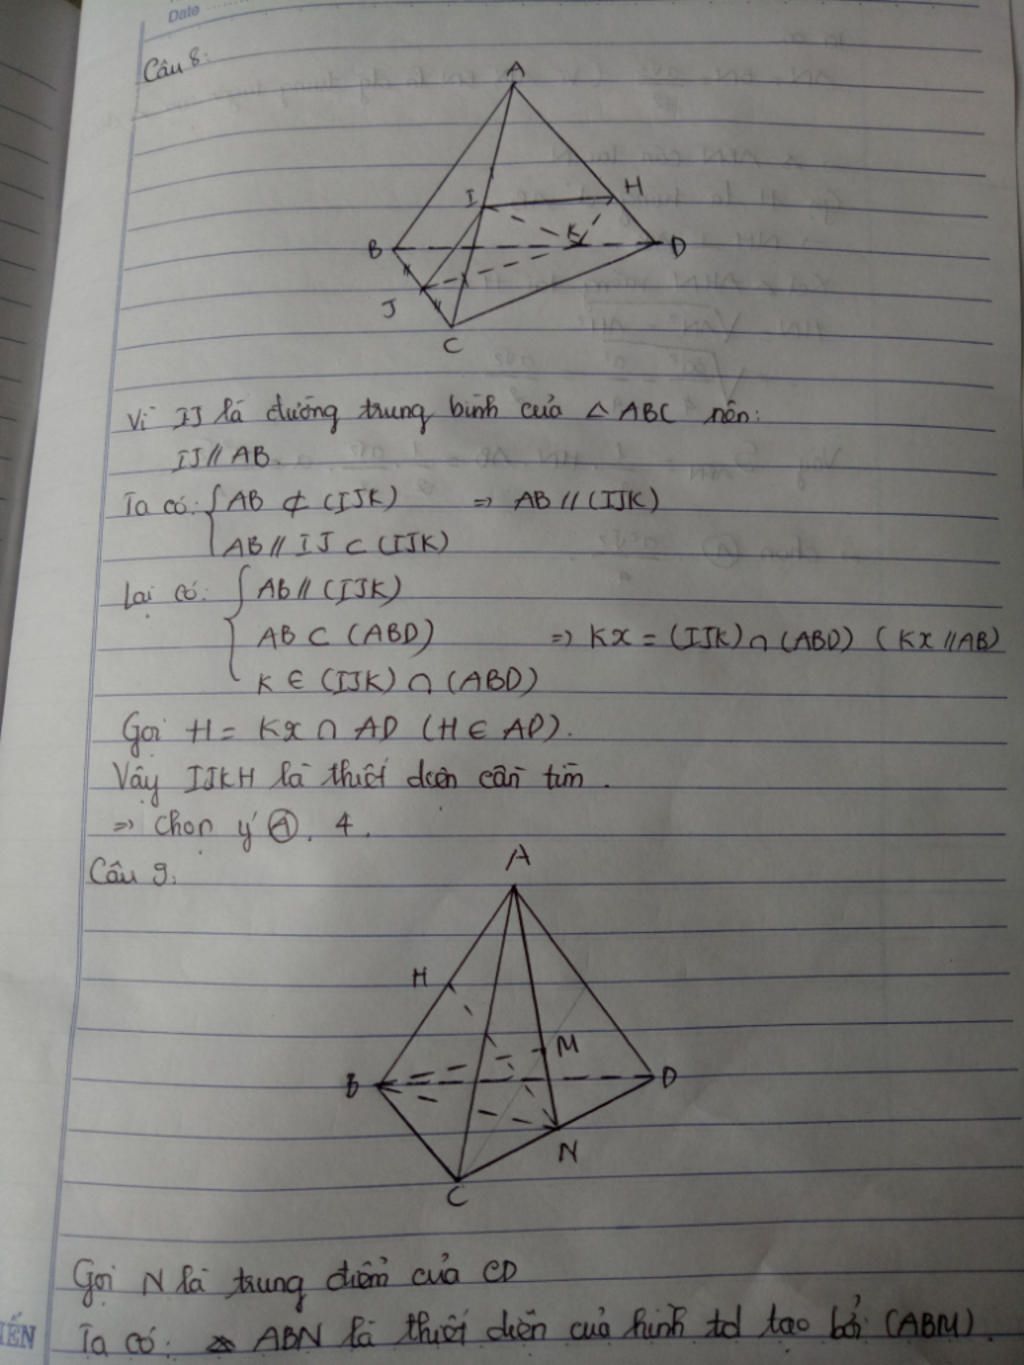 Date
Câu 8:
A
I
H
B
K
D
J
C
Vì IJ là đường trung bình của △ ABC nên:
IJ // AB.
Ta có: { AB ⊄ (IJK) => AB // (IJK)
AB // IJ ⊂ (IJK)
Lại có: { AB // (IJK)
AB ⊂ (ABD) => Kx = (IJK) ∩ (ABD) (Kx // AB)
K ∈ (IJK) ∩ (ABD)
Gọi H = Kx ∩ AD (H ∈ AD).
Vậy IJKH là thiết diện cần tìm.
=> chọn ý Ⓐ. 4.
Câu 9:
A
H
M
B
D
N
C
Gọi N là trung điểm của CD
Ta có: ABN là thiết diện của hình td tạo bởi (ABM).